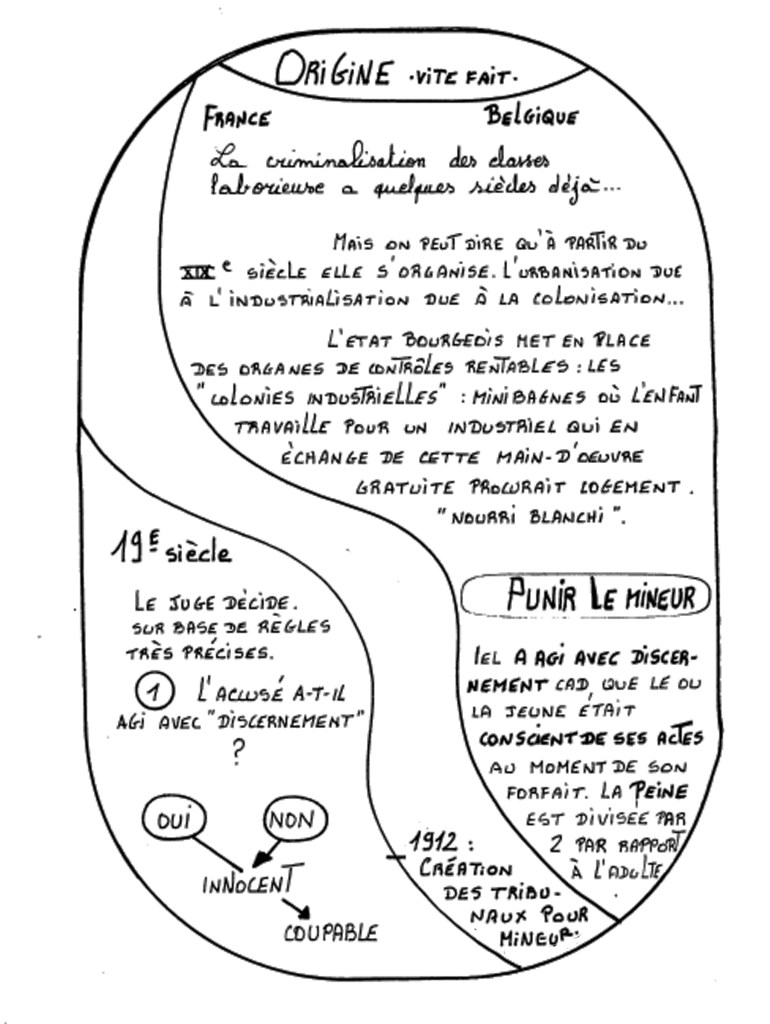 ORIGINE ·VITE FAIT·
FRANCE
BELGIQUE
La criminalisation des classes
laborieuse a quelques siècles déjà...
MAIS ON PEUT DIRE QU'À PARTIR DU
XIXe SIÈCLE ELLE S'ORGANISE. L'URBANISATION DUE
À L'INDUSTRIALISATION DUE À LA COLONISATION...
L'ETAT BOURGEOIS MET EN PLACE
DES ORGANES DE CONTRÔLES RENTABLES : LES
"COLONIES INDUSTRIELLES" : MINIBAGNES OÙ L'ENFANT
TRAVAILLE POUR UN INDUSTRIEL QUI EN
ÈCHANGE DE CETTE MAIN-D'OEUVRE
GRATUITE PROCURAIT LOGEMENT.
"NOURRI BLANCHI".
19E siècle
LE JUGE DÈCIDE.
SUR BASE DE RÈGLES
TRÈS PRÉCISES.
1 L'ACCUSÉ A-T-IL
AGI AVEC "DISCERNEMENT"
?
OUI
NON
INNOCENT
COUPABLE
PUNIR LE MINEUR
IEL A AGI AVEC DISCER-
NEMENT CAD, QUE LE OU
LA JEUNE ÉTAIT
CONSCIENT DE SES ACTES
AU MOMENT DE SON
FORFAIT. LA PEINE
EST DIVISÉE PAR
2 PAR RAPPORT
À L'ADULTE
1912 :
CRÉATION
DES TRIBU-
NAUX POUR
MINEUR.